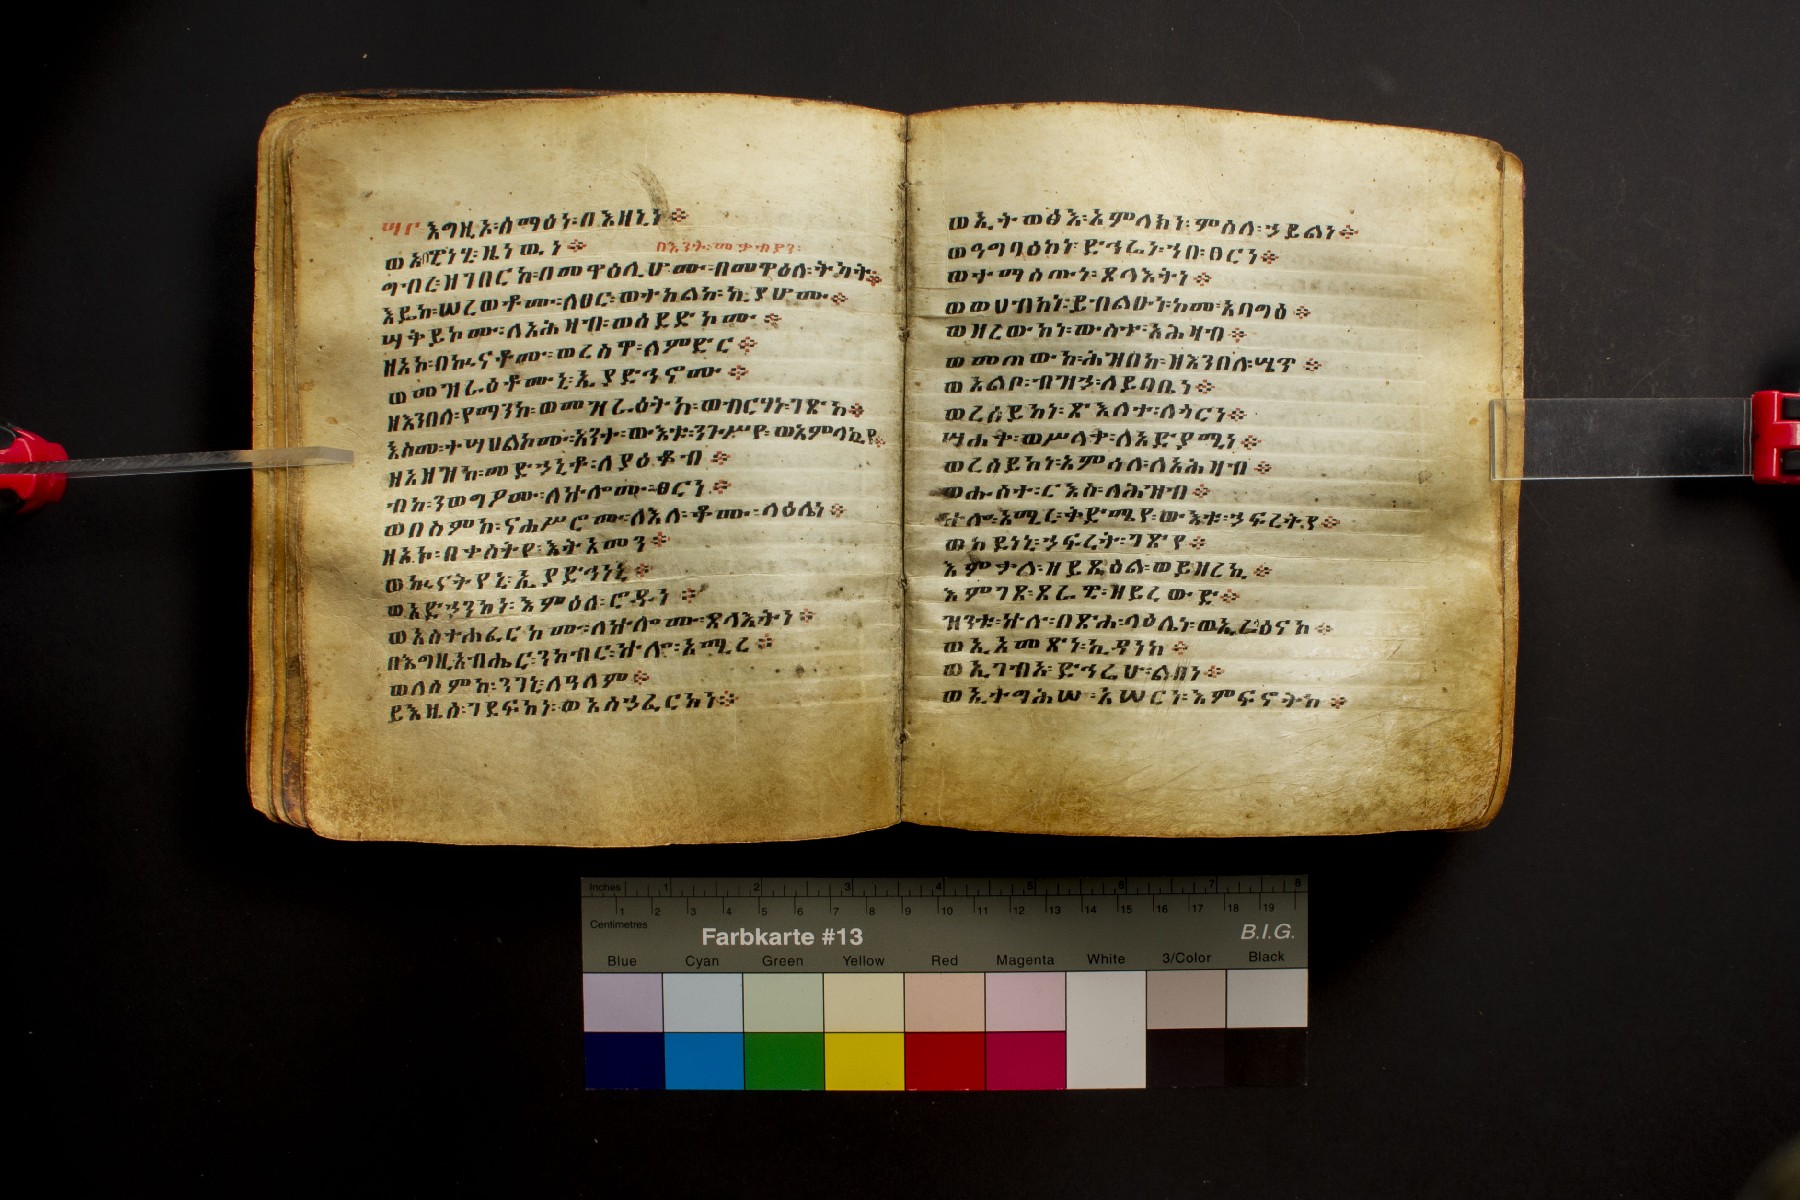 ሣር እግዚኦ፡ሰማዕነ፡በእዘኒነ፨
ወአበዊነሂ፡ዜነዉነ፨ በእንተ፡መቃብያን፡
ግብረ፡ዘገበርከ፡በመዋዕሊሆሙ፡በመዋዕለ፡ትካት፨
እዴከ፡ሠረወቶሙ፡ለፀር፡ወተከልከ፡ኪያሆሙ፨
ሣቅይኮሙ፡ለአሕዛብ፡ወሰደድኮሙ፨
ዘአኮ፡በኲናቶሙ፡ወረስዋ፡ለምድር፨
ወመዝራዕቶሙኒ፡ኢያድኀኖሙ፨
ዘእንበለ፡የማንከ፡ወመዝራዕትከ፡ወብርሃነ፡ገጽከ፨
እስመ፡ተሣሀልኮሙ፡አንተ፡ውእቱ፡ንጉሥየ፡ወአምላኪየ፨
ዘአዘዝከ፡መድኀኒቶ፡ለያዕቆብ፨
ብከ፡ንወግኦሙ፡ለኵሎሙ፡ፀርነ፨
ወበስምከ፡ናሐሥሮሙ፡ለእለ፡ቆሙ፡ላዕሌነ፨
ዘአኮ፡በቀስትየ፡እትአመን፨
ወኲናትየኒ፡ኢያድኀነኒ፨
ወአድኀንከነ፡እምዕለ፡ሮዱነ፨
ወአስተሐፈርከሙ፡ለኵሎሙ፡ጸላእትነ፨
በእግዚአብሔር፡ንከብር፡ኵሎ፡አሚረ፨
ወለስምከ፡ንገኒ፡ለዓለም፨
ይእዜሰ፡ገደፍከነ፡ወአስኃፈርከነ፨
ወኢትወፅእ፡አምላክነ፡ምስለ፡ኃይልነ፨
ወዓግባዕከነ፡ድኅሬነ፡ኀበ፡ፀርነ፨
ወተማሰጡነ፡ጸላእትነ፨
ወወሀብከነ፡ይብልዑነ፡ከመ፡አባግዕ፨
ወዘረውከነ፡ውስተ፡አሕዛብ፨
ወመጠውከ፡ሕዝበከ፡ዘእንበለ፡ሤጥ፨
ወአልቦ፡ብዝኃ፡ለይባቤነ፨
ወረሰይከነ፡ጽእለተ፡ለጎርነ፨
ሣሐቀ፡ወሥላቀ፡ለአድያሚነ፨
ወረሰይከነ፡አምሳለ፡ለአሕዛብ፨
ወሑስተ፡ርእስ፡ለሕዝብ፨
ኵሎ፡አሚረ፡ቅድሜየ፡ውእቱ፡ኃፍረትየ፨
ወከደነኒ፡ኃፍረት፡ገጽየ፨
እምቃለ፡ዘይጼዕል፡ወይዘረኪ፨
እምገጸ፡ጸራዊ፡ዘይረውድ፨
ዝንቱ፡ኵሉ፡በጽሐ፡ላዕሌነ፡ወኢረሳዕናከ፨
ወኢአመጽነ፡ኪዳንከ፨
ወኢገብአ፡ድኅሬሁ፡ልበነ፨
ወኢተግሕሠ፡አሠርነ፡እምፍናትከ፨
Inches 1 2 3 4 5 6 7 8
1 2 3 4 5 6 7 8 9 10 11 12 13 14 15 16 17 18 19
Centimetres
Farbkarte #13 B.I.G.
Blue Cyan Green Yellow Red Magenta White 3/Color Black